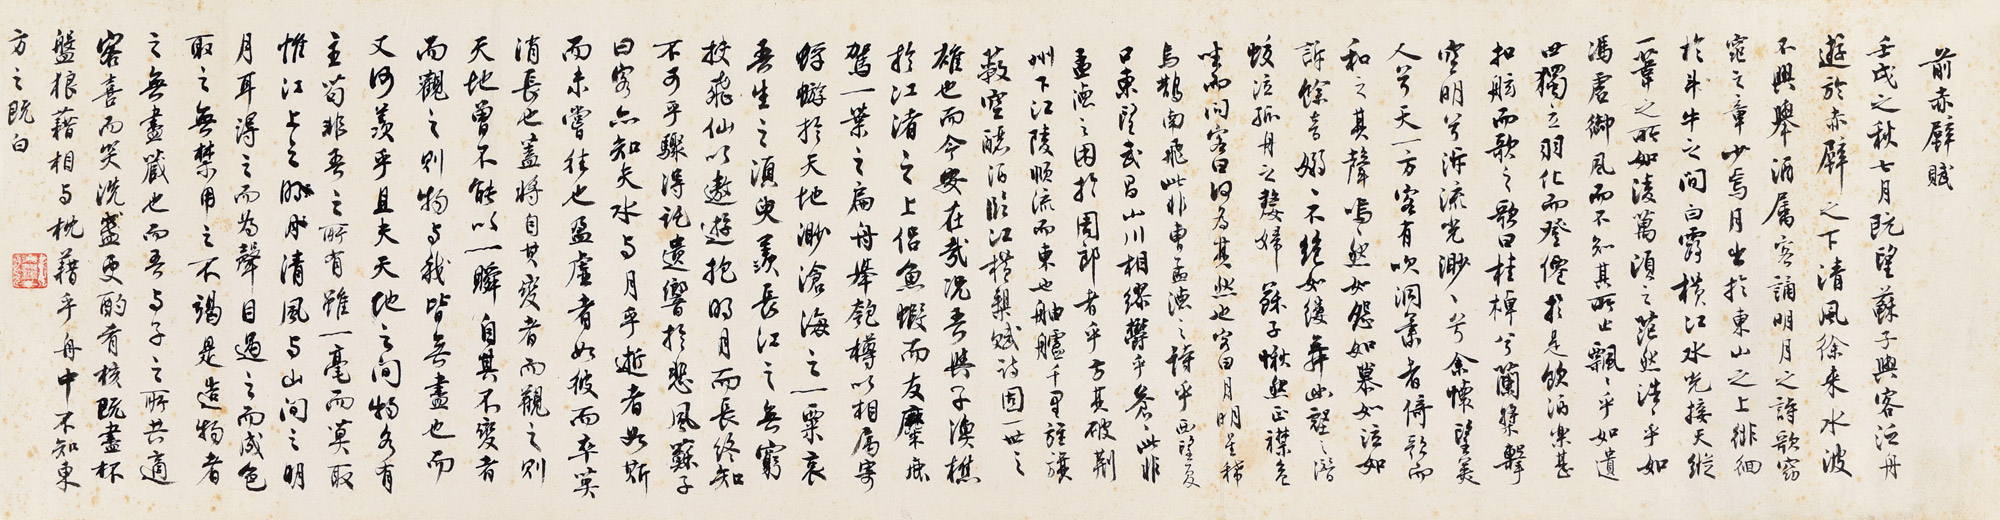 前赤壁賦
壬戌之秋七月既望蘇子與客泛舟
遊於赤壁之下清風徐来水波
不興舉酒屬客誦明月之詩歌窈
窕之章少焉月出於東山之上徘徊
於斗牛之间白露橫江水光接天縱
一葦之所如凌萬頃之茫然浩〻乎如
馮虛御風而不知其所止飄〻乎如遺
世獨立羽化而登僊於是飲酒樂甚
扣舷而歌之歌曰桂棹兮蘭槳擊
空明兮泝流光渺〻兮余懷望美
人兮天一方客有吹洞簫者倚歌而
和之其聲嗚〻然如怨如慕如泣如
訴餘音嫋〻不絕如縷舞幽壑之潛
蛟泣孤舟之嫠婦蘇子愀然正襟危
坐而问客曰何為其然也客曰月明星稀
烏鵲南飛此非曹孟德之詩乎西望夏
口東望武昌山川相繆鬱乎蒼〻此非
孟德之困於周郎者乎方其破荆
州下江陵順流而東也舳艫千里旌旗
蔽空釃酒臨江橫槊賦詩固一世之
雄也而今安在哉況吾與子漁樵
於江渚之上侣魚蝦而友麋鹿
駕一葉之扁舟舉匏樽以相屬寄
蜉蝣於天地渺滄海之一粟哀
吾生之須臾羨長江之無窮
挾飛仙以遨遊抱明月而長终知
不可乎驟得託遺響於悲風蘇子
曰客亦知夫水与月乎逝者如斯
而未嘗往也盈虛者如彼而卒莫
消長也蓋將自其變者而觀之则
天地曾不能以一瞬自其不變者
而觀之则物与我皆無盡也而
又何羨乎且夫天地之间物各有
主苟非吾之所有雖一毫而莫取
惟江上之清風与山间之明
月耳得之而為聲目遇之而成色
取之無禁用之不竭是造物者
之無盡藏也而吾与子之所共適
客喜而笑洗盞更酌肴核既盡杯
盤狼藉相与枕藉乎舟中不知東
方之既白